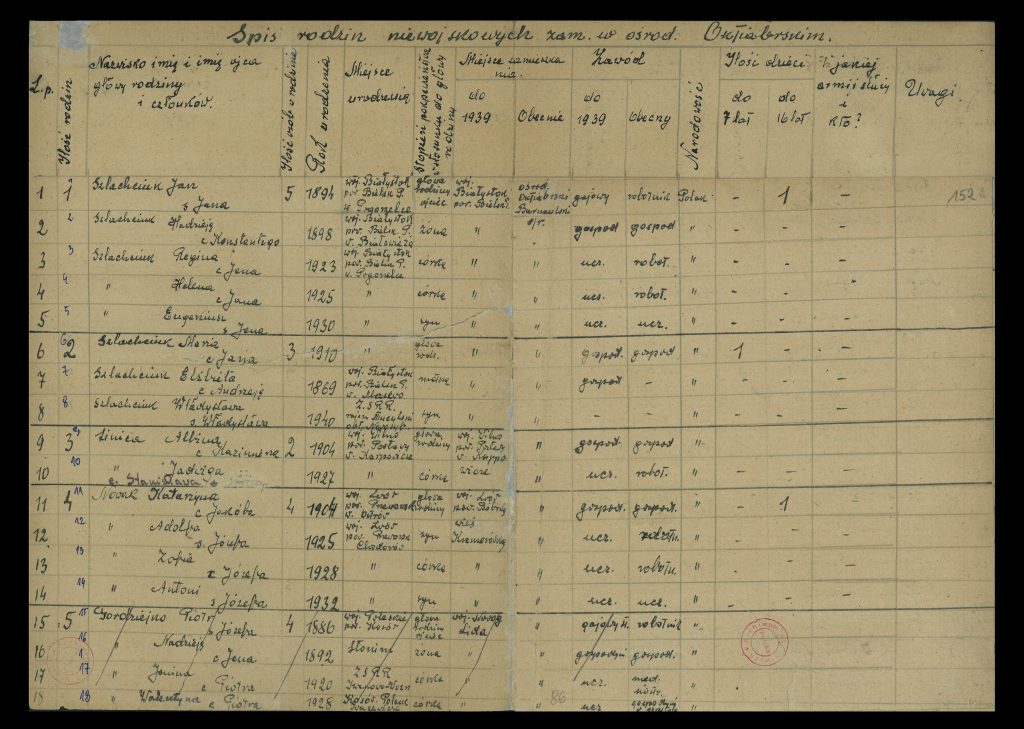 Spis rodzin niewojskowych zam. w ośrod. Oktiabrskim.
L.p. Ilość rodzin Nazwisko i imię i imię ojca głowy rodziny i członków. Ilość osób w rodzinie Rok urodzenia Miejsce urodzenia Stopień pokrewieństwa w stosunku do głowy rodziny Miejsce zamieszkania. do 1939 Obecnie Zawód do 1939 Obecny Narodowość Ilość dzieci do 7 lat do 16 lat W jakiej armji służy i kto? Uwagi.
1 1 Szlachciuk Jan
s Jana 5 1894 woj. Białystok pow. Bielsk P. głowa rodziny ojciec woj. Białystok pow. Bielsk ośrod. Oktiabrski gajowy robotnik Polak - 1 - 152
2 2 Szlachciuk Nadzieja
c Konstantego 1898 woj. Białystok pow. Bielsk P. w. Białowieża żona " gospod gospod " - - -
3 3 Szlachciuk Regina
c Jana 1923 woj. Białystok pow. Bielsk P. córka " " ucz. robot. " - - -
4 4 " Helena
c Jana 1925 " córka " " ucz. robot. " - - -
5 5 " Eugeniusz
s Jana 1930 " syn " " ucz. ucz. " - - -
6 2 6 Szlachciuk Maria
c Jana 3 1910 " głowa rodz. " " gospod. gospod " 1 - -
7 7 Szlachciuk Elżbieta
c Andrzeja 1869 woj. Białystok pow. Bielsk P. " " gospod - " - -
8 8 Szlachciuk Władysława
s. Władysława 1940 ZSRR syn " " - - " - -
9 3 9 Albina
c Kazimierza 2 1904 woj. Wilno pow. Postawy głowa rodziny woj. Wilno " gospod. gospod " - - -
10 10 " Jadwiga
c. Stanisława 1927 " córka " ucz. robot. " - - -
11 4 11 Nowak Katarzyna
c Jakóba 4 1904 woj. Lwów pow. Przeworsk głowa rodziny woj. Lwów pow. Bóbrka " gospod. gospod. " - 1 -
12 12 " Adolf
s. Józefa 1925 woj. Lwów Chodorów syn wieś " ucz. " -
13 13 " Zofia
c Józefa 1928 " córka " " ucz. robotn. " -
14 14 " Antoni
s Józefa 1932 " syn " " ucz. ucz. " -
15 5 15 Gordziejko Piotr
s Józefa 4 1886 woj. Poleskie głowa rodzin ojciec Lida " robotnik "
16 16 " Nadzieja
c Jana 1892 Słonim żona " " gospodyni gospod. "
17 17 " Janina
c Piotra 1920 ZSRR córka " " ucz. "
18 18 " Walentyna
c Piotra 1928 córka " " ucz "
86